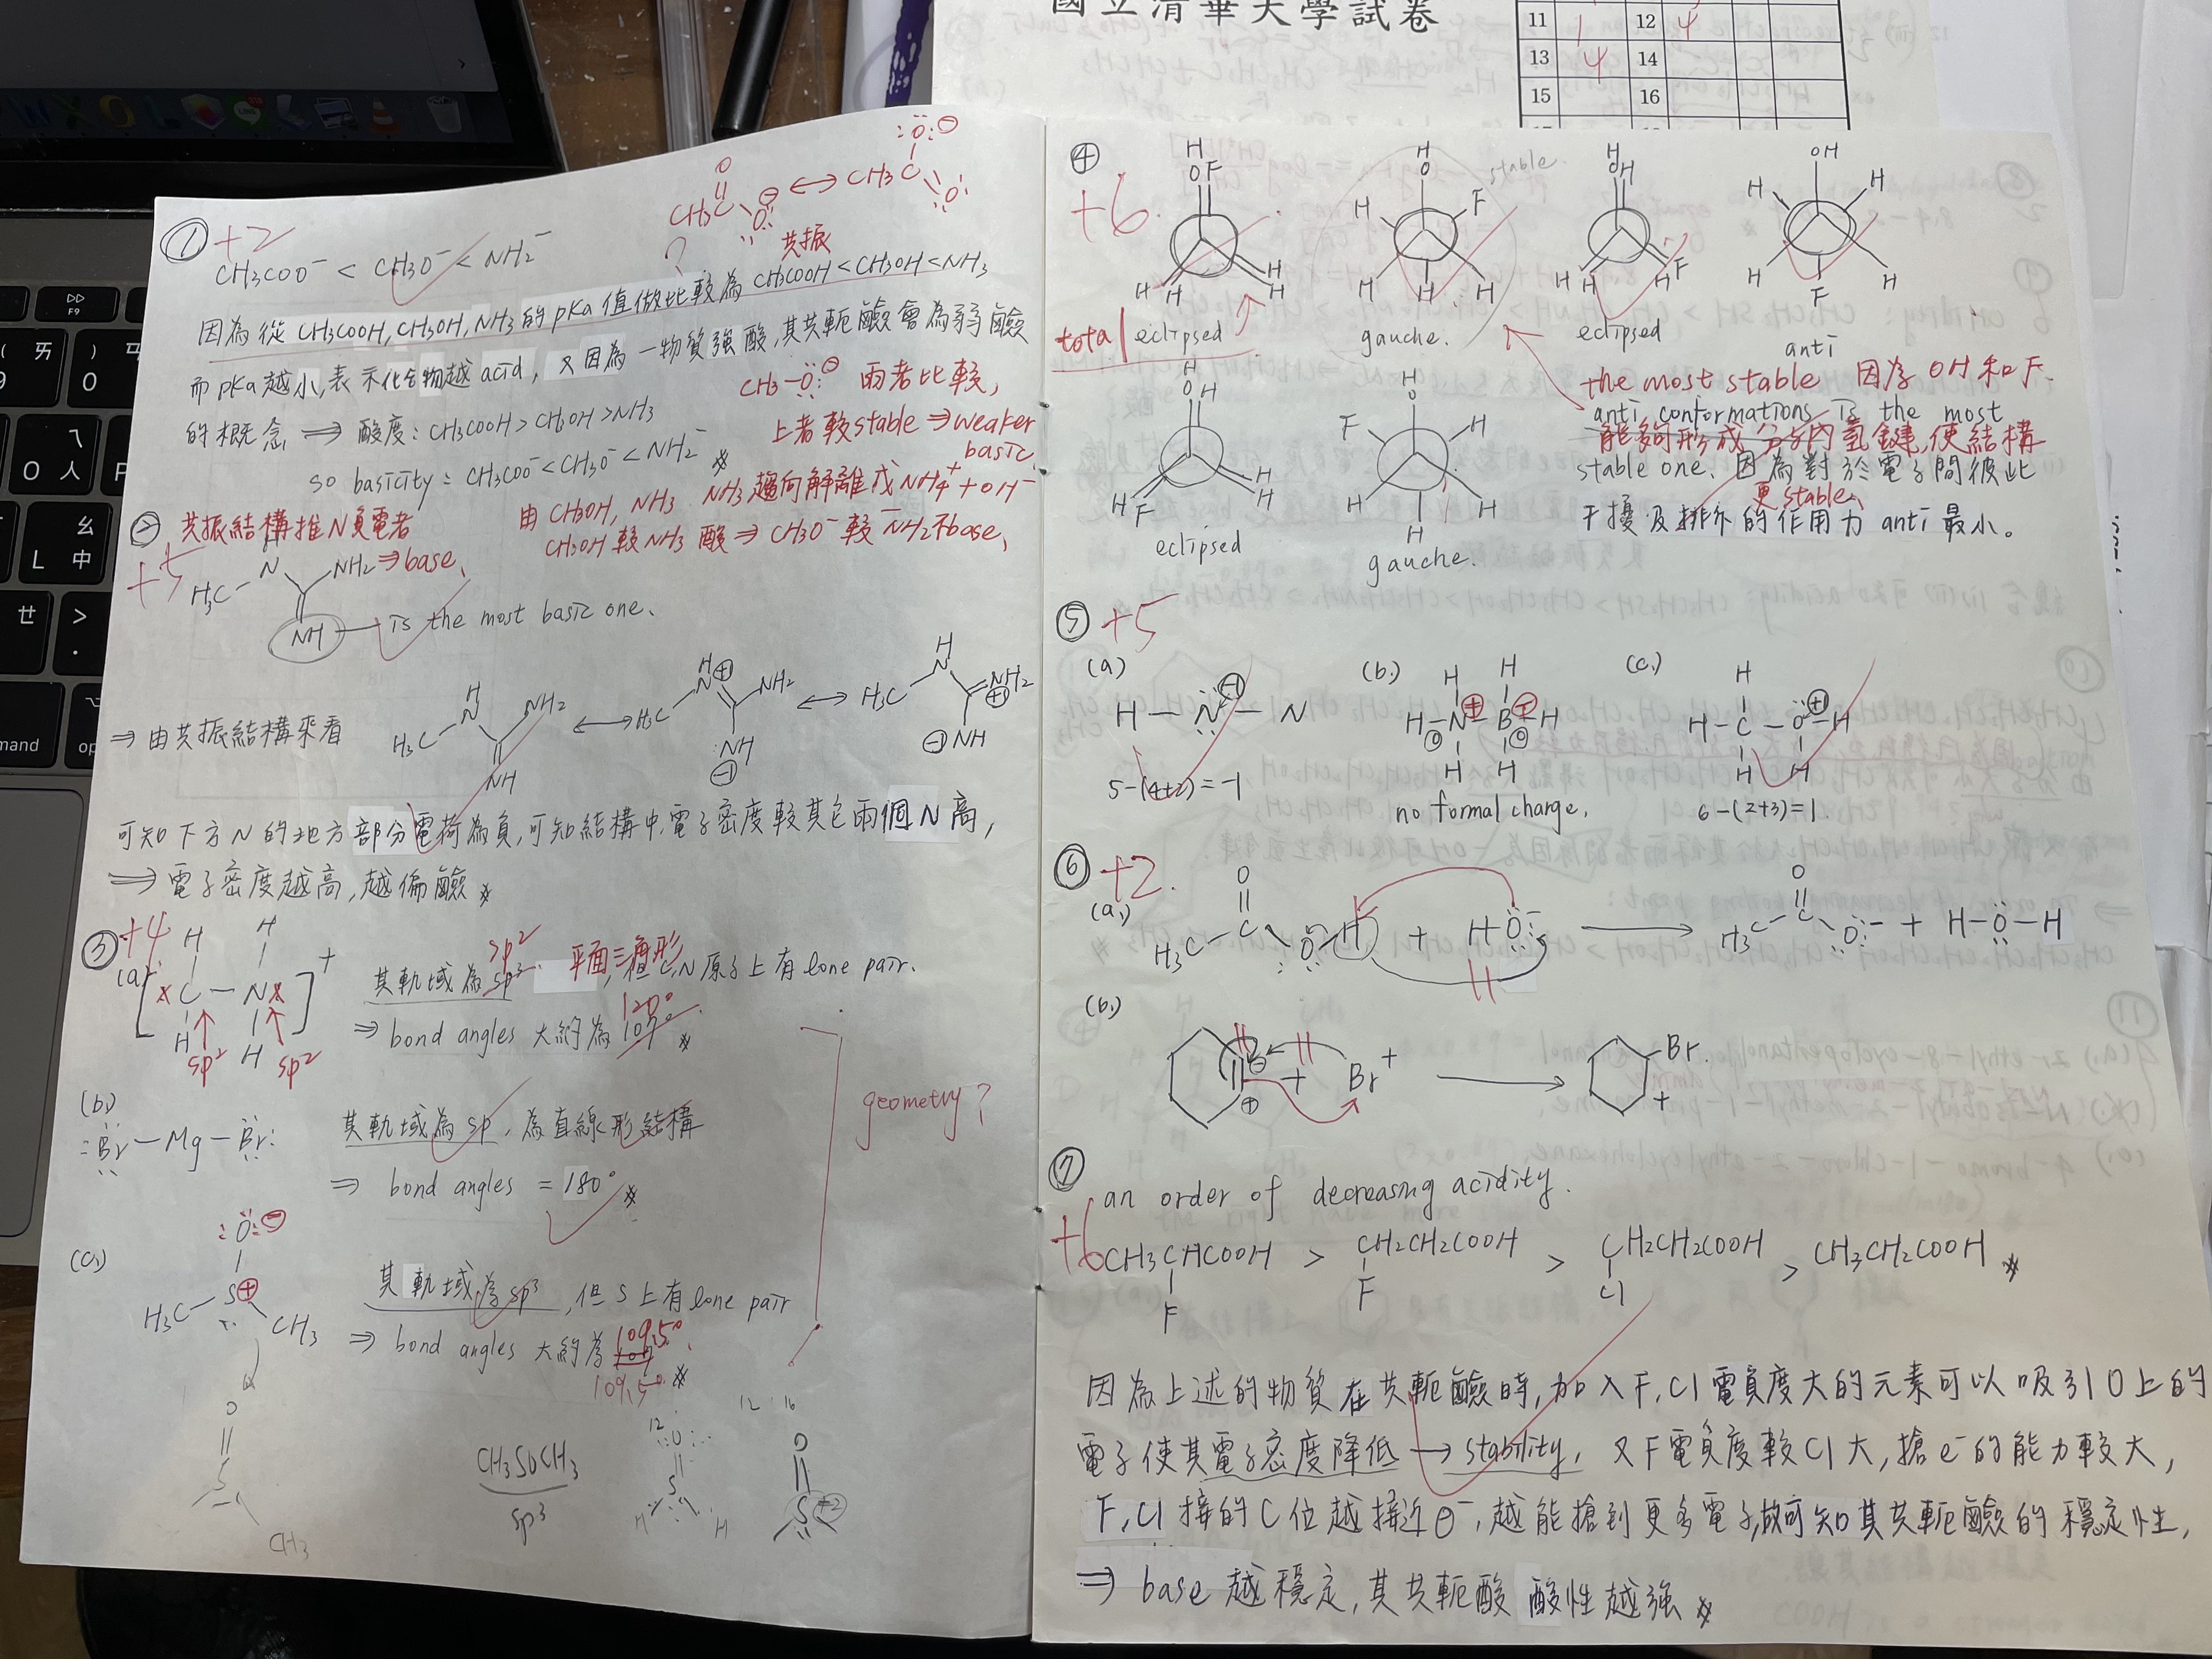 國立清華大學試卷
11 1 12 4
13 4 14
15 16
① +2
CH3COO⁻ < CH3O⁻ < NH2⁻
共振
因為從 CH3COOH, CH3OH, NH3 的 pKa 值做比較為 CH3COOH < CH3OH < NH3
而 pKa 越小,表示化合物越 acid, 又因為一物質強酸,其共軛鹼會為弱鹼
的概念 ⇒ 酸度: CH3COOH > CH3OH > NH3
so basicity = CH3COO⁻ < CH3O⁻ < NH2⁻
CH3-O⊖ 兩者比較,
上者較stable ⇒ weaker
basic
由 CH3OH, NH3 NH3 趨向解離成 NH4⁺ + OH⁻
CH3OH 較 NH3 酸 ⇒ CH3O⁻ 較 NH2 不base、
② +5
共振結構推N負電者
⇒ base、
H3C N NH2
NH is the most basic one.
⇒ 由共振結構來看
可知下方 N 的地方部分電荷為負,可知結構中,電子密度較其它兩個 N 高,
⇒ 電子密度越高,越偏鹼
③ +4
(a)
其軌域為 sp³ sp² 平面三角形, N 原子上有 lone pair.
⇒ bond angles 大約為 107° 120°
sp² sp²
(b)
:Br-Mg-Br:
其軌域為 sp, 為直線形結構
⇒ bond angles = 180°
geometry?
(c)
H3C S CH3
其軌域為 sp³, 但 S 上有 lone pair
⇒ bond angles 大約為 107 109.5°
109.5°
CH3SOCH3
sp³
④ +6
stable
total
eclipsed
gauche.
eclipsed
anti
the most stable 因為 OH 和 F
anti conformations is the most
能夠形成分子內氫鍵,使結構
stable one. 因為對於電子間彼此
更stable、
干擾及排斥的作用力 anti 最小。
eclipsed
gauche.
⑤ +5
(a)
H-N-N
5-(4+2)=-1
(b)
no formal charge.
(c)
6-(2+3)=1.
⑥ +2
(a)
H-O-H
(b)
Br⁺
Br.
⑦ +6
an order of decreasing acidity.
CH3CHCOOH > CH2CH2COOH > CH2CH2COOH > CH3CH2COOH
F F Cl
因為上述的物質在共軛鹼時,加入 F, Cl 電負度大的元素可以吸引 O 上的
電子使其電子密度降低 → stability, 又 F 電負度較 Cl 大, 搶 e⁻ 的能力較大,
F, Cl 接的 C 位越接近 O⁻, 越能搶到更多電子,故可知其共軛鹼的穩定性,
⇒ base 越穩定,其共軛酸 酸性越強